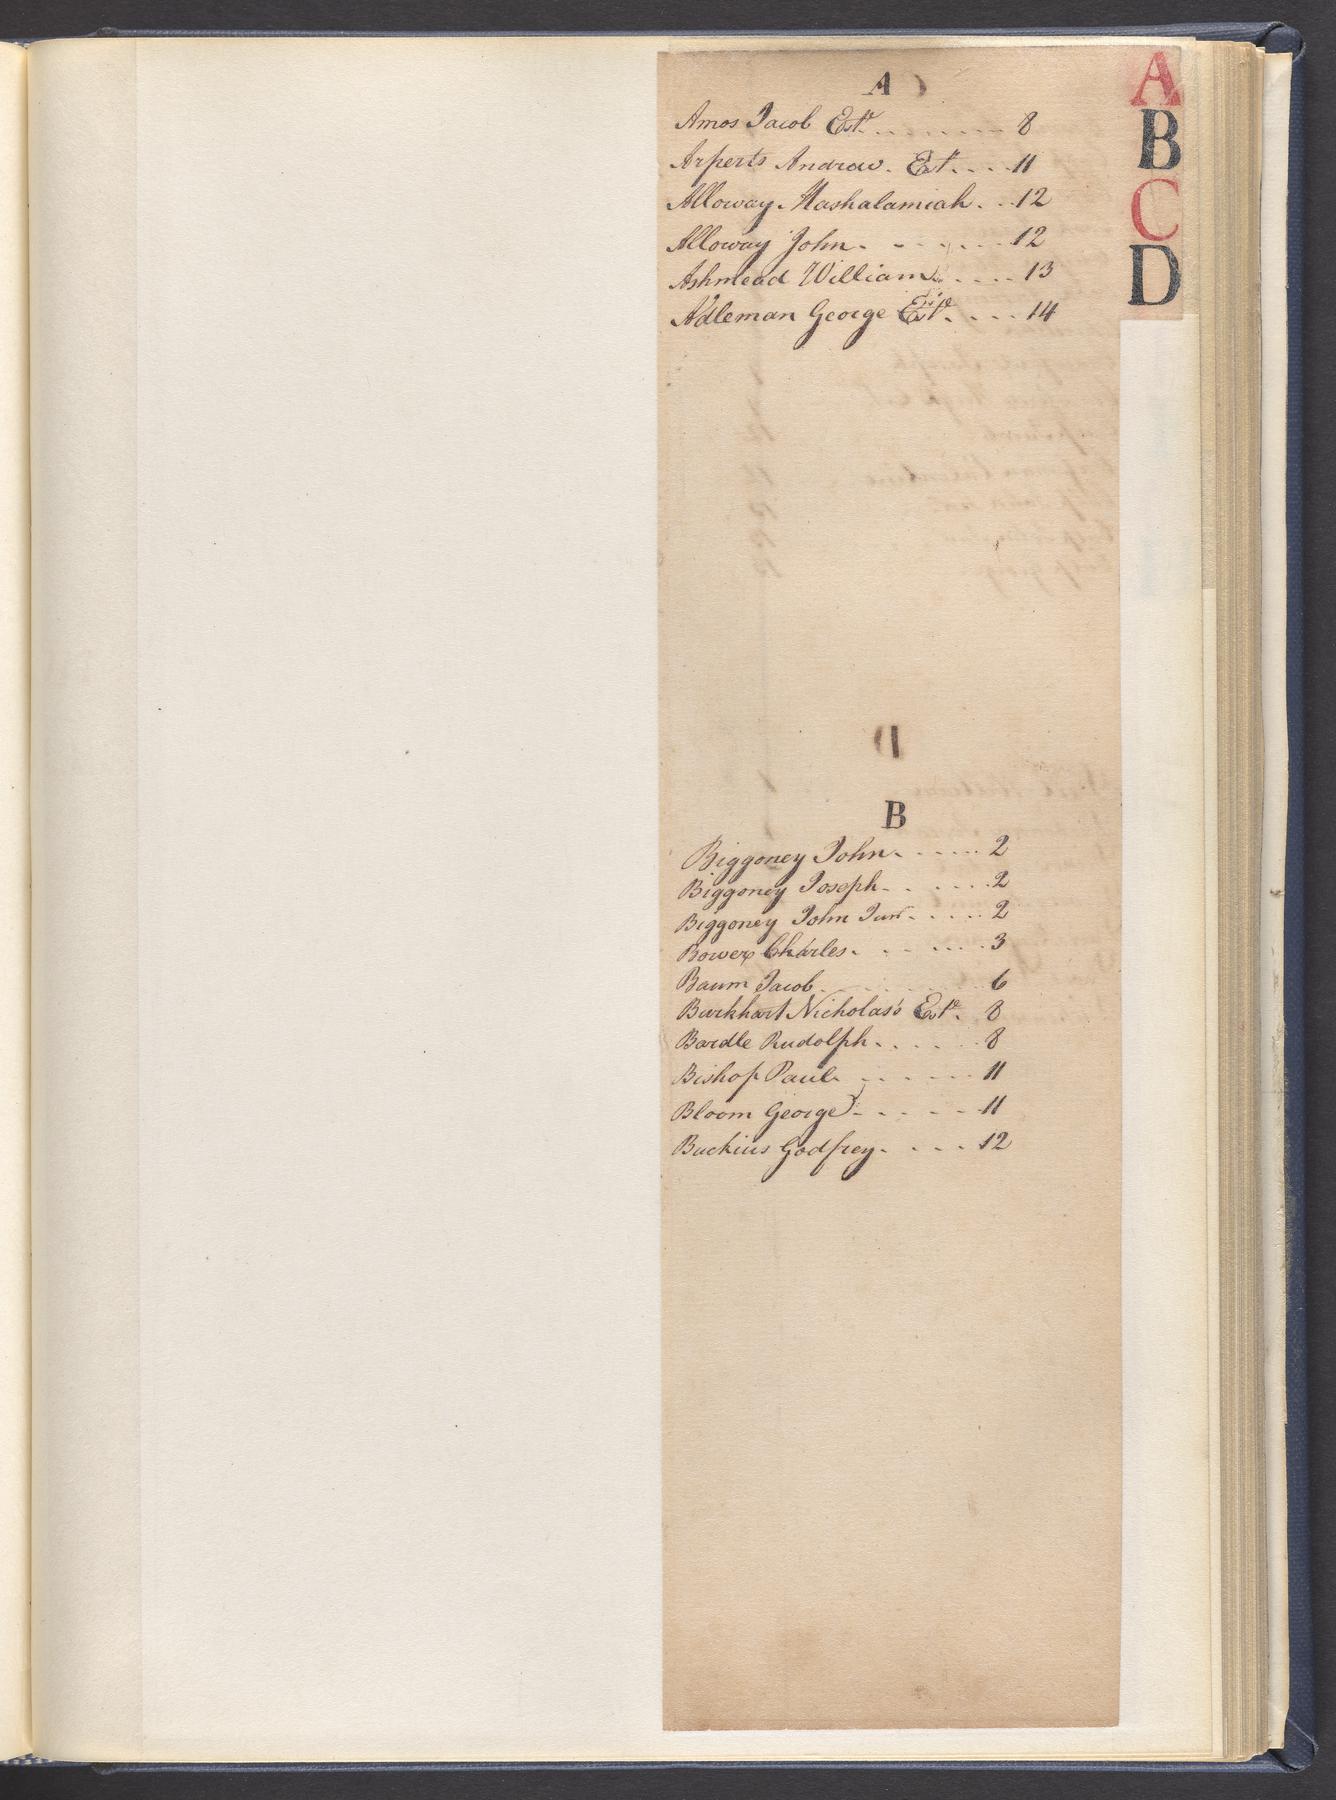 A
Amos Jacob Este. . . . . . . . 8
Arperts Andrew. Est. . . . 11
Alloway Mashalamiah. . . 12
Alloway John. . . . . . . 12
Ashmead William. . . . . 13
Adleman George Este. . . . 14
B
Biggoney John. . . . . . 2
Biggoney Joseph. . . . . . 2
Biggoney John Junr. . . . . 2
Bower Charles. . . . . . . 3
Baum Jacob. . . . . . . 6
Burkhart Nicholas's Este. 8
Bardle Rudolph. . . . . . 8
Bishop Paul. . . . . . 11
Bloom George. . . . . . 11
Buckius Godfrey. . . . . 12
A
B
C
D